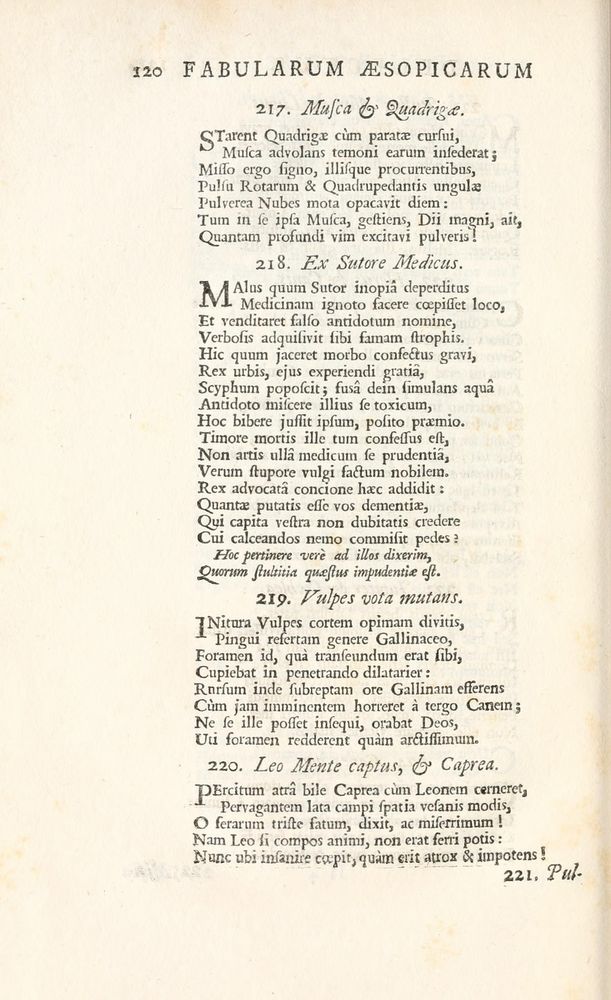 120 FABULARUM ÆSOPICARUM
217. Muſca & Quadrigæ.
STarent Quadrigæ cùm paratæ curſui,
Muſca advolans temoni earum inſederat;
Miſſo ergo ſigno, illiſque procurrentibus,
Pulſu Rotarum & Quadrupedantis ungulæ
Pulverea Nubes mota opacavit diem:
Tum in ſe ipſa Muſca, geſtiens, Dii magni, ait,
Quantam profundi vim excitavi pulveris!
218. Ex Sutore Medicus.
MAlus quum Sutor inopiâ deperditus
Medicinam ignoto facere cœpiſſet loco,
Et venditaret falſo antidotum nomine,
Verboſis adquiſivit ſibi famam ſtrophis.
Hic quum jaceret morbo confectus gravi,
Rex urbis, ejus experiendi gratiâ,
Scyphum popoſcit; fuſâ dein ſimulans aquâ
Antidoto miſcere illius ſe toxicum,
Hoc bibere juſſit ipſum, poſito præmio.
Timore mortis ille tum confeſſus eſt,
Non artis ullâ medicum ſe prudentiâ,
Verum ſtupore vulgi factum nobilem.
Rex advocatâ concione hæc addidit:
Quantæ putatis eſſe vos dementiæ,
Qui capita veſtra non dubitatis credere
Cui calceandos nemo commiſit pedes?
Hoc pertinere verè ad illos dixerim,
Quorum ſtultitia quæſtus impudentiæ eſt.
219. Vulpes vota mutans.
INitura Vulpes cortem opimam divitis,
Pingui refertam genere Gallinaceo,
Foramen id, quà tranſeundum erat ſibi,
Cupiebat in penetrando dilatarier:
Rnrſum inde ſubreptam ore Gallinam efferens
Cùm jam imminentem horreret à tergo Canem;
Ne ſe ille poſſet inſequi, orabat Deos,
Uti foramen redderent quàm arctiſſimum.
220. Leo Mente captus, & Caprea.
PErcitum atrâ bile Caprea cùm Leonem cerneret,
Pervagantem lata campi ſpatia veſanis modis,
O ferarum triſte fatum, dixit, ac miſerrimum!
Nam Leo ſi compos animi, non erat ferri potis:
Nunc ubi inſanire cœpit, quàm erit atrox & impotens!
221. Pul-